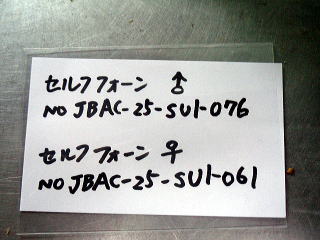 セルフフォーン ♂
NO JBAC-25-SU1-076
セルフフォーン ♀
NO JBAC-25-SU1-061